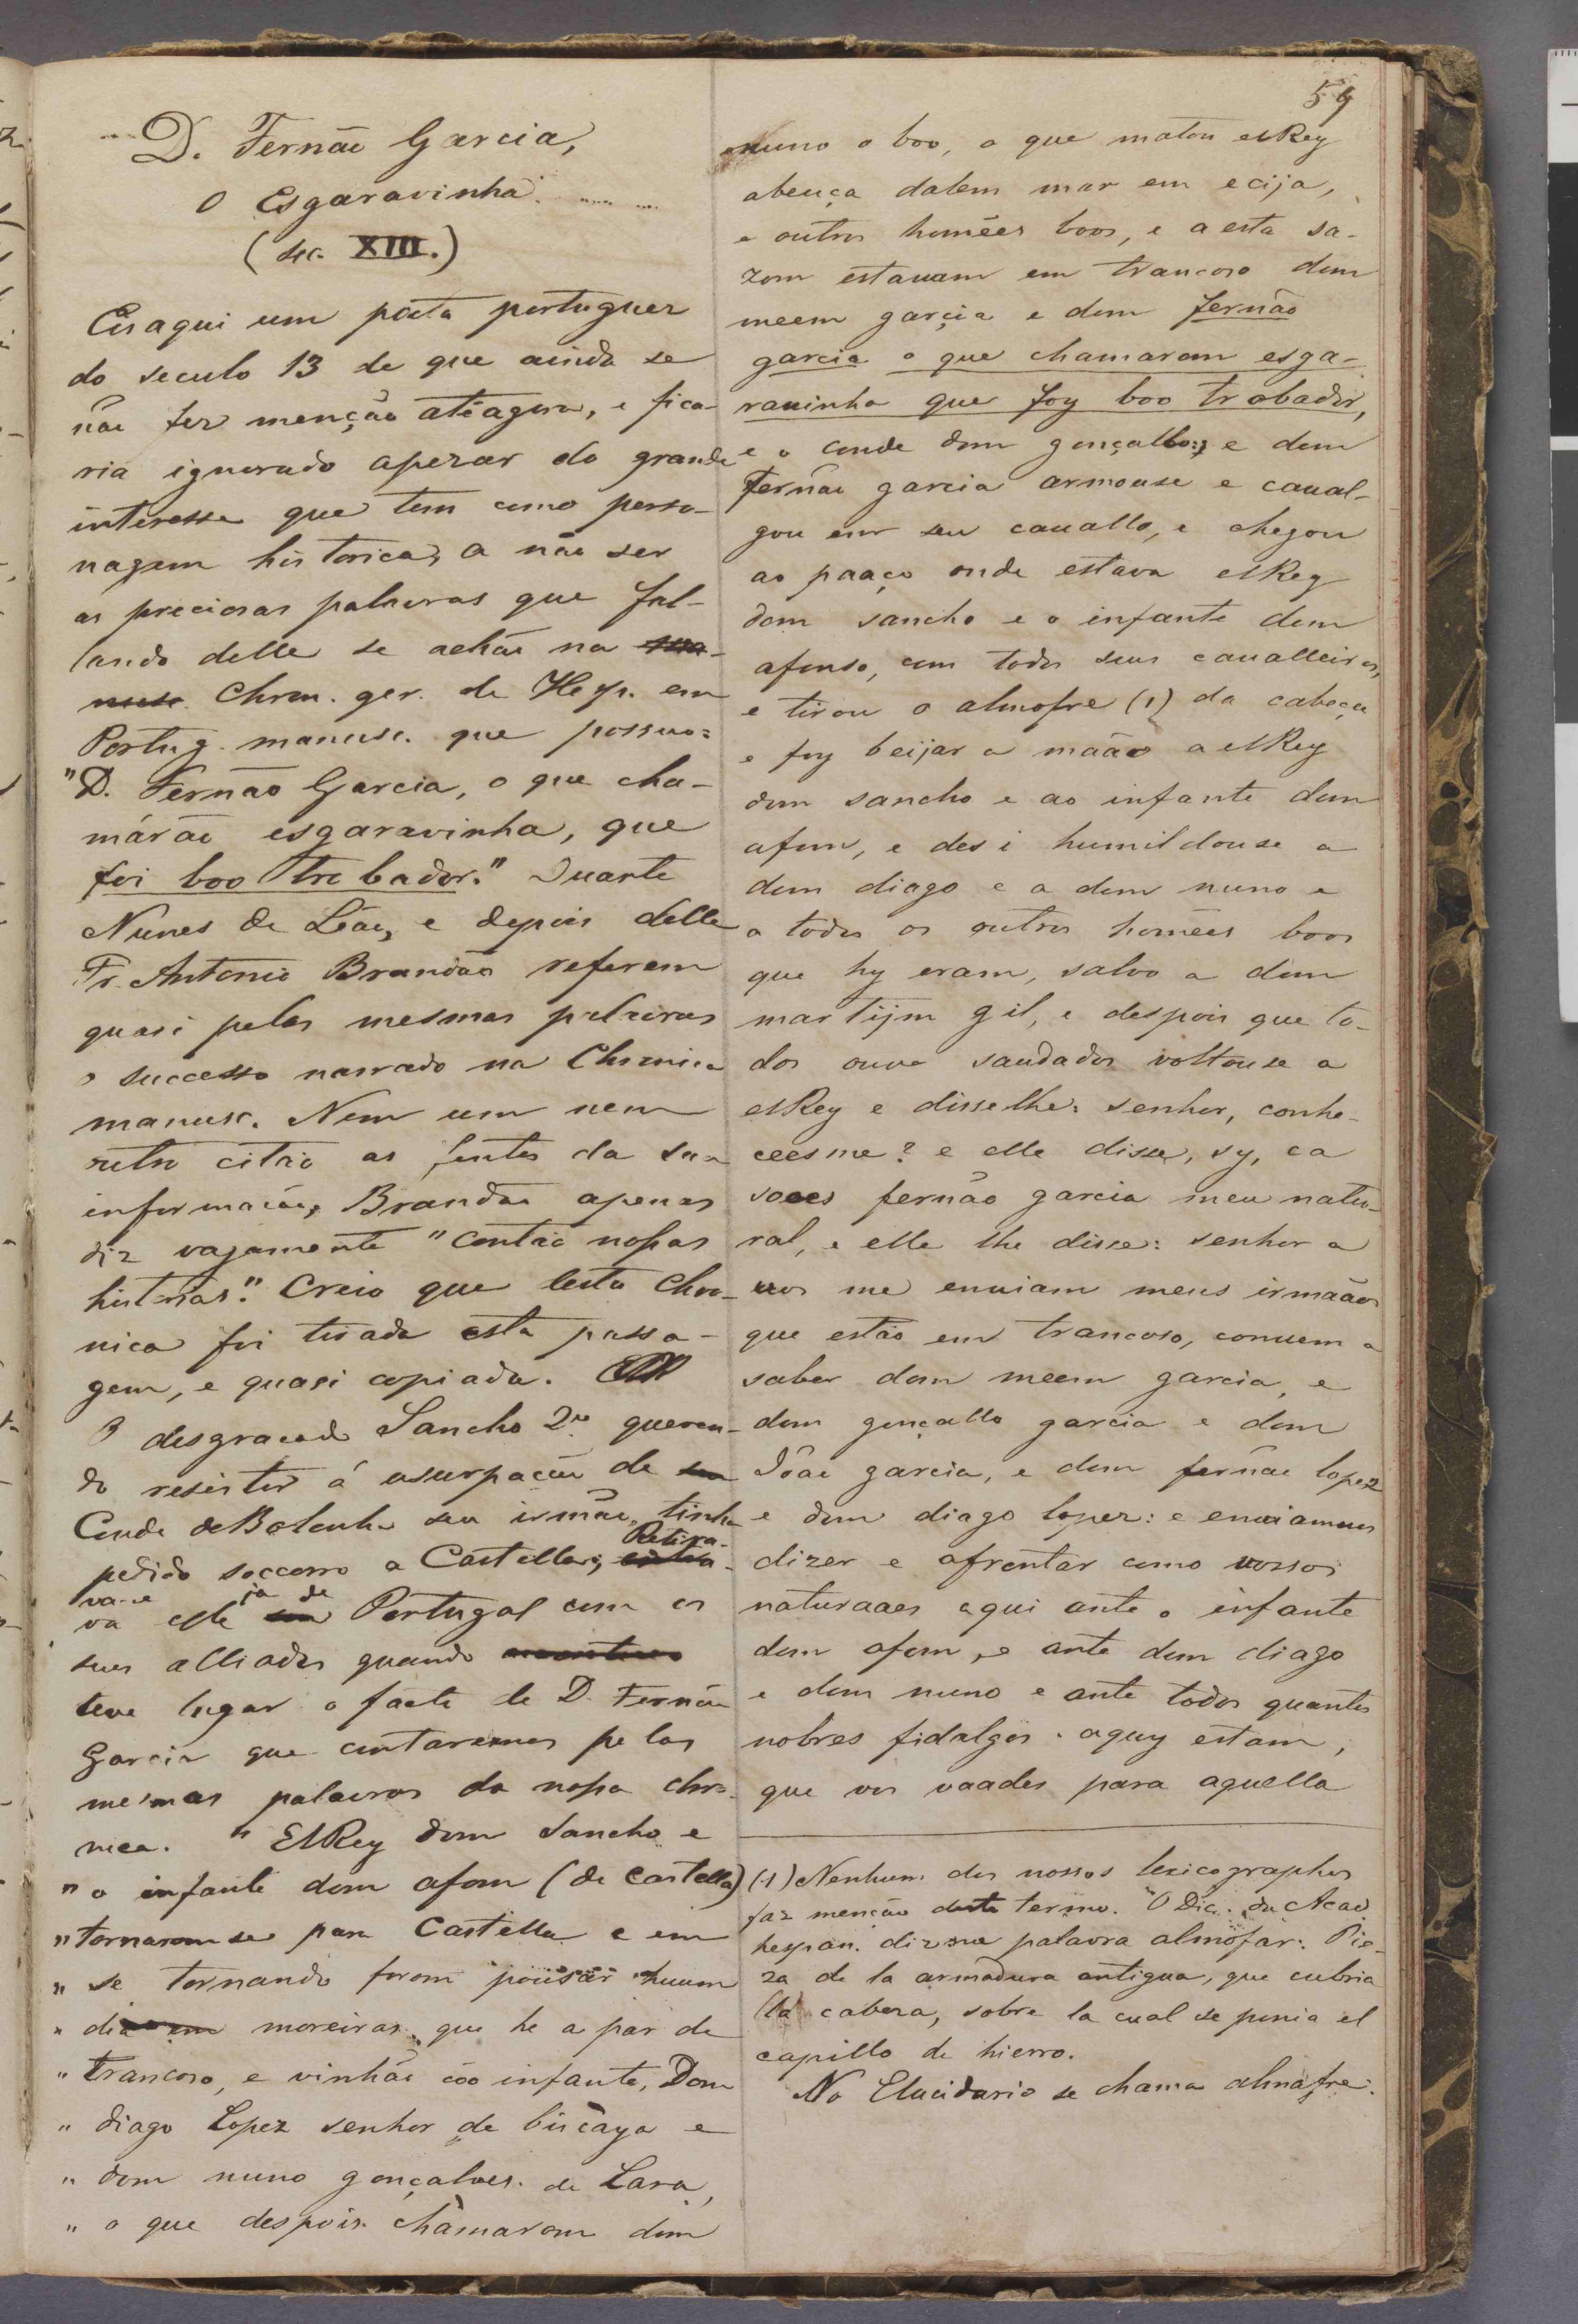 59
D. Fernão Garcia,
O Esgaravinha.
(sec. XIII.)
Eis aqui um poeta portuguez
do seculo 13 de que ainda se
não fez menção atéagora, e fica-
ria ignorado apezar do grande
interesse que tem como perso-
nagem historica, a não ser
as preciosas palavras que fal-
lando delle se achão na
Chron. ger. de Hesp. em
Portug. manusc. que possuo:
"D. Fernão Garcia, o que cha-
márão esgaravinha, que
foi boo trobador." Duarte
Nunes de Leão, e depois delle
Fr. Antonio Brandão referem
quasi pelas mesmas palavras
o successo narrado na Chronica
manusc. Nem um nem
outro citão as fontes da sua
informação, Brandão apenas
diz vagamente "contão nossas
historias." Creio que desta Chro-
nica foi tirada esta passa-
gem, e quasi copiada.
O desgraçado Sancho 2º queren-
do resistir á usurpação do
Conde de Bolonha seu irmão, tinha
pedido soccorro a Castella; Retira-
va-se este já de Portugal com os
seus alliados quando
teve lugar o facto de D. Fernão
Garcia que contaremos pelas
mesmas palavras da nossa chro-
nica. "ElRey dom Sancho e
" o infante dom afom (de Castella)
" tornaromse para Castella e em
" se tornando forom pousar huum
" dia em moreiras, que he a par de
" trancoso, e vinhão cõo infante, Dom
" diago Lopez senhor de biscaya e
" dom nuno gonçalves de Lara,
" o que despois chamarom dom
nuno o boo, o que matou elRey
abeuça dalem mar em ecija,
e outros homẽes boos, e a esta sa-
zom estavam em trancoso dom
meem garçia e dom fernão
garcia o que chamarom esga-
rauinha que foy boo trobador,
e o conde dom gonçallo; e dom
fernão garcia armouse e caual-
gou em seu cauallo, e chegou
ao paaço onde estava elRey
dom sancho e o infante dom
afonso, com todos seus caualleiros,
e tirou o almofre (1) da cabeça
e foy beijar a mãao a elRey
dom sancho e ao infante dom
afom, e des i humildouse a
dom diago e a dom nuno e
a todos os outros homẽes boos
que hy eram, salvo a dom
martijm gil, e despois que to-
dos ouve saudados voltouse a
elRey e disselhe: senhor, conhe-
ceesme? e elle disse, sy, ca
soees fernão garcia meu natu-
ral, e elle lhe disse: senhor a
uos me enuiam meus irmãaos
que estão em trancoso, conuem a
saber dom meem garcia, e
dom gonçallo garcia e dom
João garcia, e dom fernão lopez
e dom diago lopez: e enuiamuos
dizer e afrontar como uossos
naturaaes aqui ante o infante
dom afom, e ante dom diago
e dom nuno e ante todos quantos
nobres fidalgos aquy estam,
que vos vaades para aquella
(1) Nenhum dos nossos lexicographos
faz menção deste termo. O Dic. da Acad.
hespan. diz na palavra almófar: Pie-
za de la armadura antigua, que cubria
la cabeza, sobre la cual se ponia el
capillo de hierro.
No Elucidario se chama almafre.